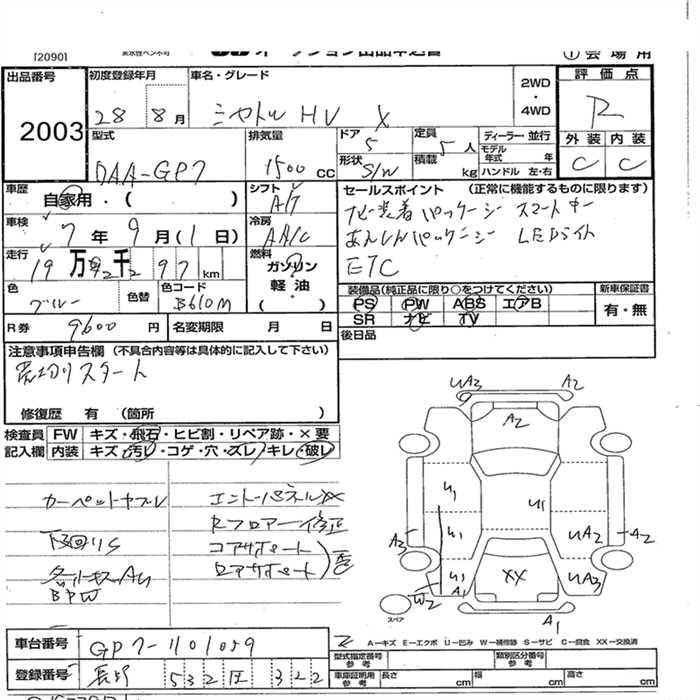 [2090]
① 会場用
出品番号 2003
初度登録年月 28 8月
車名・グレード シャトル HV X
2WD・4WD
評価点 R
外装 C 内装 C
型式 DAA-GP7
排気量 1500 CC
ドア 5
形状 S/W
定員 5人
積載 kg
ディーラー・並行
モデル年式 年
ハンドル 左・右
車歴 自家用・( )
シフト A/T
車検 7年 9月(1日)
冷房 AAC
走行 19万92千297km
燃料 ガソリン 軽油( )
色 ブルー
色替
色コード B610M
R券 9600円
名変期限 月 日
セールスポイント (正常に機能するものに限ります)
ナビ装着パッケージ スマートキー
あんしんパッケージ LEDライト
ETC
装備品(純正品に限り○をつけてください)
PS PW ABS エアB
SR ナビ TV
新車保証書 有・無
後日品
注意事項申告欄 (不具合内容等は具体的に記入して下さい)
売切りスタート
修復歴 有 (箇所 )
検査員記入欄
FW キズ・飛石・ヒビ割・リペア跡・×要
内装 キズ・汚レ・コゲ・穴・スレ・キレ・破レ
カーペットヤブレ
下回りS
BPW
エンドパネルXX
Rフロアー修正
コアサポート
ロアサポート
UA3 A2
A2
U1 U1
A3 U1 UA2 A2
U1 A1 XX UA3
W2
スペア
A1
A-キズ E-エクボ U-凹み W-補修跡 S-サビ C-腐食 XX-交換済
車台番号 GP7-1101059
登録番号 長野 532 322
型式指定番号 参考
類別区分番号 参考
車庫証明用 参考 長さ cm 幅 cm 高さ cm